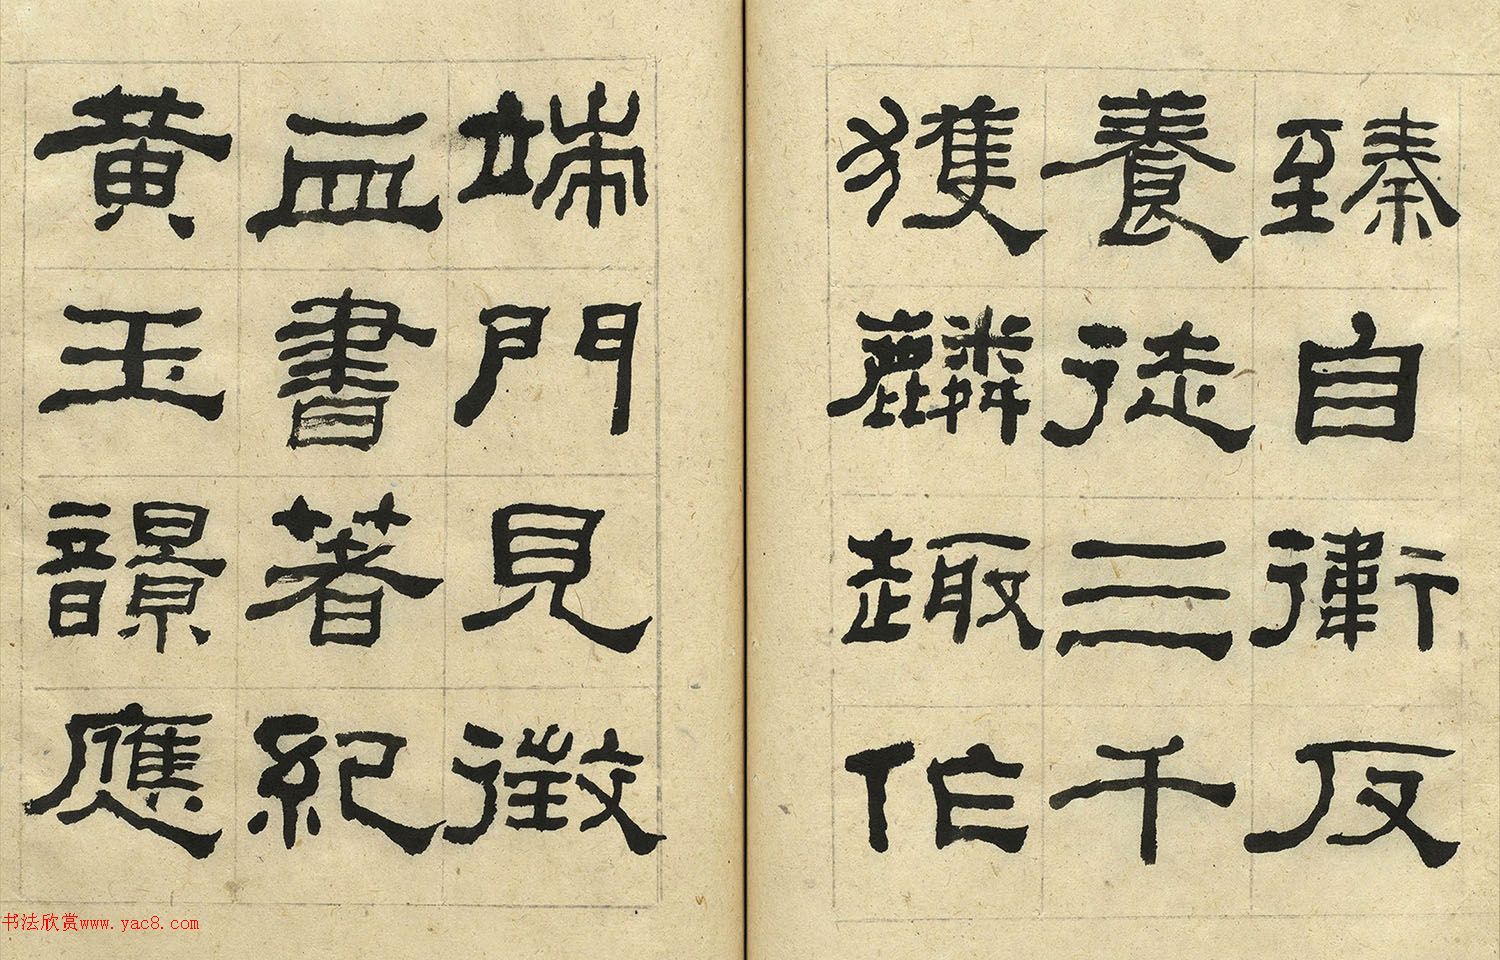 臻自衛反
養徒三千
獲麟趣作
端門見徵
血書著紀
黄玉䪫應
书法欣赏www.yac8.com